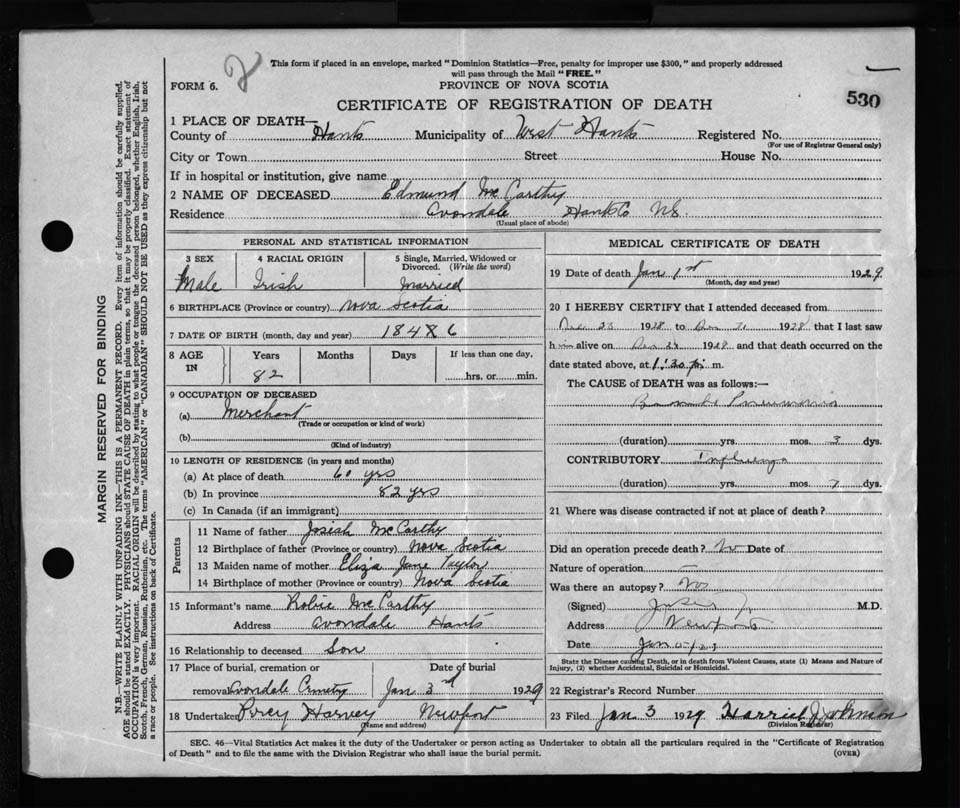 2
This form if placed in an envelope, marked "Dominion Statistics—Free, penalty for improper use $300," and properly addressed
will pass through the Mail "FREE."
FORM 6.
PROVINCE OF NOVA SCOTIA
530
CERTIFICATE OF REGISTRATION OF DEATH
1 PLACE OF DEATH—
County of Hants Municipality of West Hants Registered No.
(For use of Registrar General only)
City or Town Street House No.
If in hospital or institution, give name
2 NAME OF DECEASED Edmund McCarthy
Residence Avondale Hants Co NS.
(Usual place of abode)
PERSONAL AND STATISTICAL INFORMATION
3 SEX 4 RACIAL ORIGIN 5 Single, Married, Widowed or
Divorced. (Write the word)
Male Irish Married
6 BIRTHPLACE (Province or country) Nova Scotia
7 DATE OF BIRTH (month, day and year) 1848 6
8 AGE Years Months Days If less than one day,
IN 82 hrs. or min.
9 OCCUPATION OF DECEASED
(a) Merchant
(Trade or occupation or kind of work)
(b)
(Kind of industry)
10 LENGTH OF RESIDENCE (in years and months)
(a) At place of death 60 yrs
(b) In province 82 yrs
(c) In Canada (if an immigrant)
Parents
11 Name of father Josiah McCarthy
12 Birthplace of father (Province or country) Nova Scotia
13 Maiden name of mother Eliza Jane Taylor
14 Birthplace of mother (Province or country) Nova Scotia
15 Informant's name Robie McCarthy
Address Avondale Hants
16 Relationship to deceased Son
17 Place of burial, cremation or Date of burial
removal Avondale Cemetry Jan 3rd 1929
18 Undertaker Percy Harvey Newport
(Name and address)
MEDICAL CERTIFICATE OF DEATH
19 Date of death Jan 1st 1929
(Month, day and year)
20 I HEREBY CERTIFY that I attended deceased from
Dec 1928 to Dec 1928 that I last saw
him alive on Dec 1928 and that death occurred on the
date stated above, at 1:30 p. m.
The CAUSE of DEATH was as follows:—
Pneumonia
(duration) yrs. mos. 3 dys.
CONTRIBUTORY Influenza
(duration) yrs. mos. 7 dys.
21 Where was disease contracted if not at place of death?
Did an operation precede death? No Date of
Nature of operation
Was there an autopsy? No
(Signed) M.D.
Address Newport
Date Jan
State the Disease causing Death, or in death from Violent Causes, state (1) Means and Nature of
Injury, (2) whether Accidental, Suicidal or Homicidal.
22 Registrar's Record Number
23 Filed Jan 3 1929 Harriet Johnson
(Division Registrar)
SEC. 46—Vital Statistics Act makes it the duty of the Undertaker or person acting as Undertaker to obtain all the particulars required in the "Certificate of Registration
of Death" and to file the same with the Division Registrar who shall issue the burial permit.
(OVER)
MARGIN RESERVED FOR BINDING
N.B.—WRITE PLAINLY WITH UNFADING INK—THIS IS A PERMANENT RECORD. Every item of information should be carefully supplied.
AGE should be stated EXACTLY. PHYSICIANS should STATE CAUSE OF DEATH in plain terms, so that it may be properly classified. Exact statement of
OCCUPATION is very important. RACIAL ORIGIN will be described by stating to what people or tongue the deceased person belonged, whether English, Irish,
Scotch, French, German, Russian, Ruthenian, etc. The terms "AMERICAN" or "CANADIAN" SHOULD NOT BE USED as they express citizenship but not
a race or people. See instructions on back of Certificate.